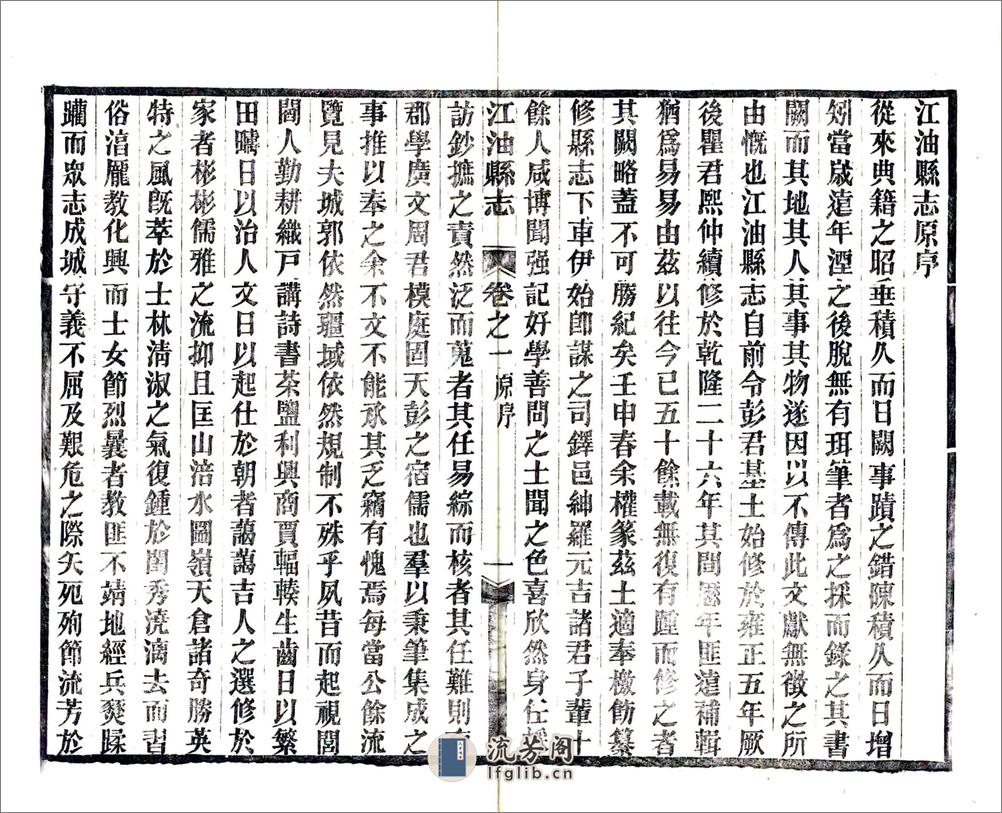 江油縣志原序
從來典籍之昭垂積久而日闕事蹟之錯陳積久而日增
矧當歲遠年湮之後脫無有珥筆者爲之採而錄之其書
闕而其地其人其事其物遂因以不傳此文獻無徵之所
由慨也江油縣志自前令彭君基土始修於雍正五年厥
後瞿君熙仲續修於乾隆二十六年其間歷年匪遠補輯
猶爲易易由茲以往今已五十餘載無復有踵而修之者
其闕略蓋不可勝紀矣壬申春余權篆茲土適奉檄飭纂
修縣志下車伊始卽謀之司鐸邑紳羅元吉諸君子輩十
餘人咸博聞强記好學善問之士聞之色喜欣然身任
江油縣志 卷之一 原序 一
訪鈔摭之責然泛而蒐者其任易綜而核者其任難則
郡學廣文周君模庭固天彭之宿儒也羣以秉筆集成之
事推以奉之余不文不能承其乏竊有愧焉每當公餘流
覽見夫城郭依然疆域依然規制不殊乎夙昔而起視閭
閻人勤耕織戸講詩書茶鹽利興商賈輻輳生齒日以繁
田疇日以治人文日以起仕於朝者藹藹吉人之選修於
家者彬彬儒雅之流抑且匡山涪水圖嶺天倉諸奇勝英
特之風旣萃於士林淸淑之氣復鍾於閨秀澆漓去而習
俗湻龎教化興而士女節烈曩者教匪不靖地經兵燹蹂
躪而眾志成城守義不屈及艱危之際矢死殉節流芳於
流芳阁
lfglib.cn